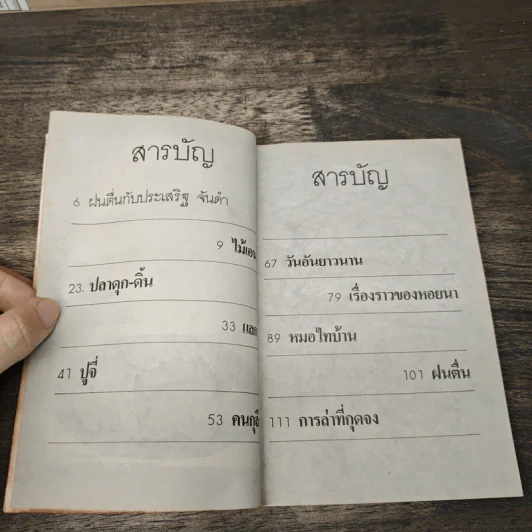 สารบัญ
6 ฝนตื่นกับประเสริฐ จันดำ
9 ไม้เอน
23. ปลาดุก-ดิ้น
33 แลก
41 ปูจี่
53 คนกุลี
สารบัญ
67 วันอันยาวนาน
79 เรื่องราวของหอยนา
89 หมอไทบ้าน
101 ฝนตื่น
111 การล่าที่กุดจง